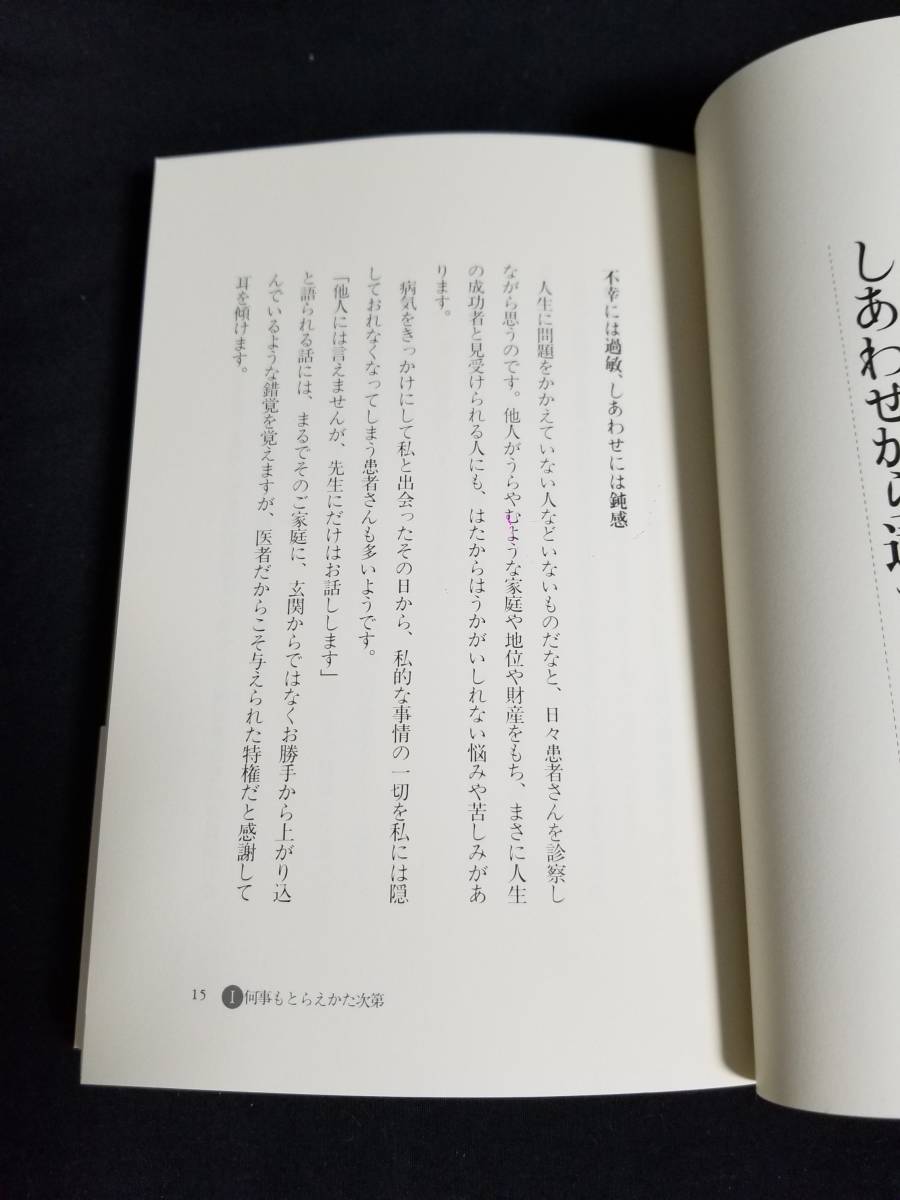 しあわせから
不幸には過敏、しあわせには鈍感
人生に問題をかかえていない人などいないものだなと、日々患者さんを診察し
ながら思うのです。他人がうらやむような家庭や地位や財産をもち、まさに人生
の成功者と見受けられる人にも、はたからはうかがいしれない悩みや苦しみがあ
ります。
病気をきっかけにして私と出会ったその日から、私的な事情の一切を私には隠
しておれなくなってしまう患者さんも多いようです。
「他人には言えませんが、先生にだけはお話しします」
と語られる話には、まるでそのご家庭に、玄関からではなくお勝手から上がり込
んでいるような錯覚を覚えますが、医者だからこそ与えられた特権だと感謝して
耳を傾けます。
15 I 何事もとらえかた次第